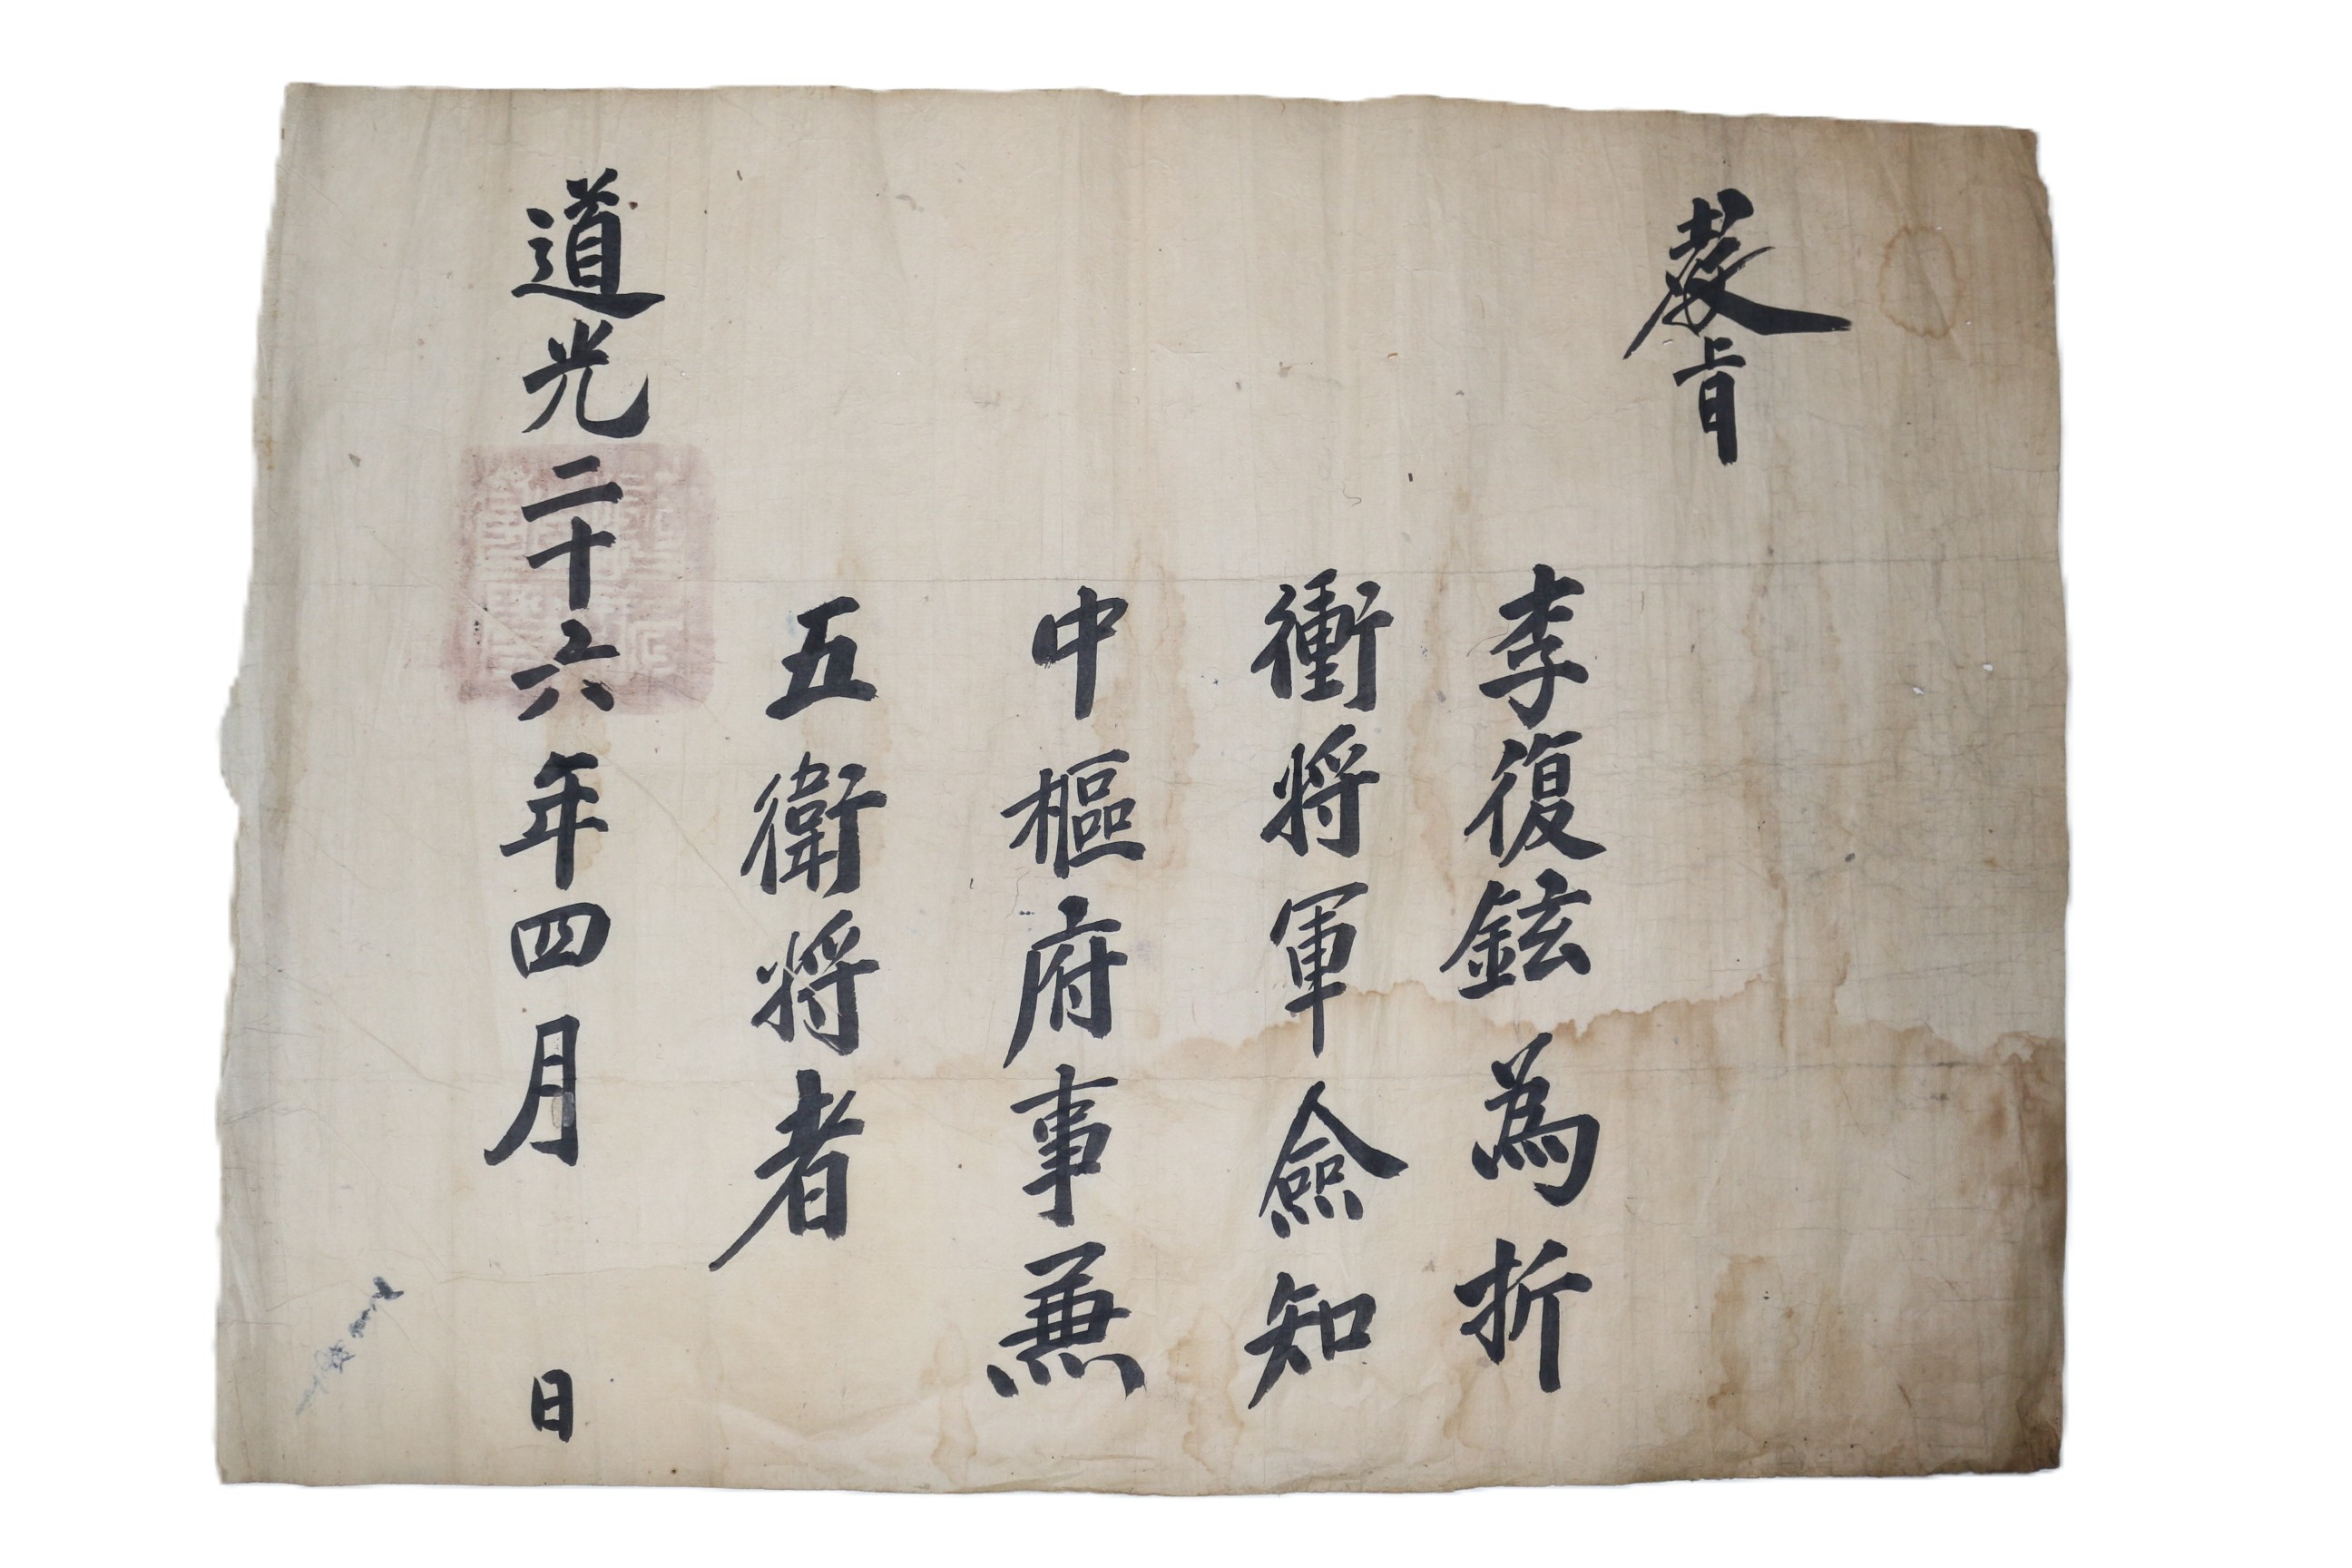 教旨
李復鉉為折
衝將軍僉知
中樞府事兼
五衛將者
道光二十六年四月 日